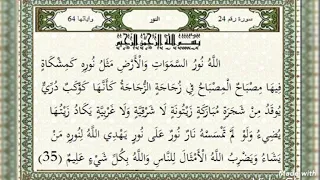 سورة رقم 24
النور
وآياتها 64
بسم الله الرحمن الرحيم
اللَّهُ نُورُ السَّمَوَاتِ وَالْأَرْضِ مَثَلُ نُورِهِ كَمِشْكَاةٍ
فِيهَا مِصْبَاحٌ الْمِصْبَاحُ فِي زُجَاجَةٍ الزُّجَاجَةُ كَأَنَّهَا كَوْكَبٌ دُرِّيٌّ
يُوقَدُ مِنْ شَجَرَةٍ مُبَارَكَةٍ زَيْتُونَةٍ لَا شَرْقِيَّةٍ وَلَا غَرْبِيَّةٍ يَكَادُ زَيْتُهَا
يُضِيءُ وَلَوْ لَمْ تَمْسَسْهُ نَارٌ نُورٌ عَلَى نُورٍ يَهْدِي اللَّهُ لِنُورِهِ مَنْ
يَشَاءُ وَيَضْرِبُ اللَّهُ الْأَمْثَالَ لِلنَّاسِ وَاللَّهُ بِكُلِّ شَيْءٍ عَلِيمٌ (35)
Made with